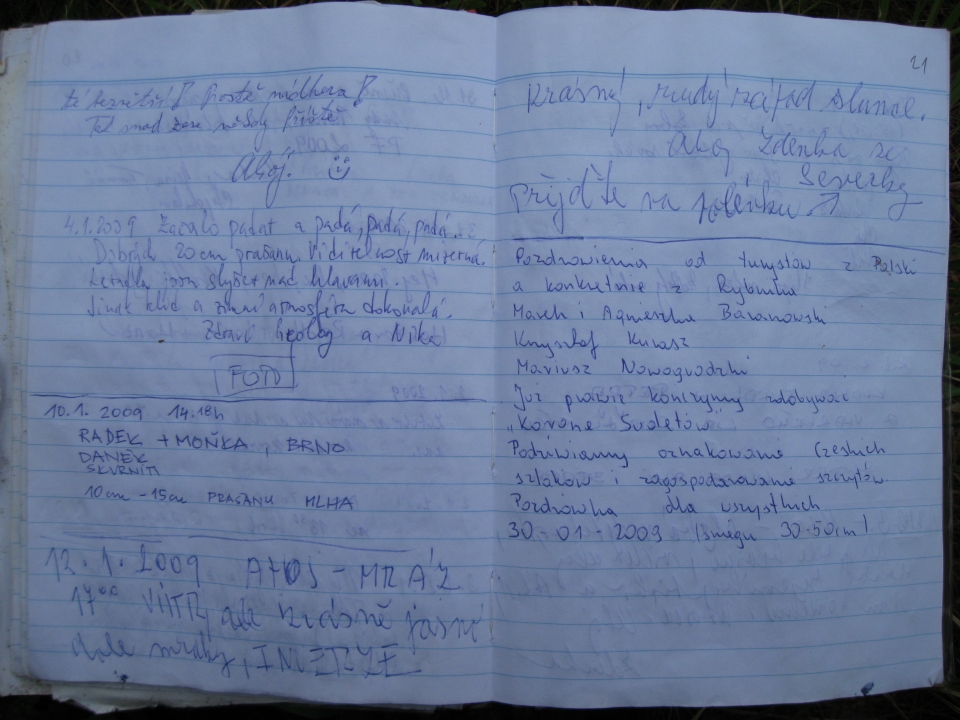 Prostě nádhera
Ahoj.
4.1.2009 Začalo padat a padá, padá, padá.
Dobrých 20cm prašanu. Viditelnost mizerná.
Letadla jsou slyšet nad hlavami.
Jinak klid a zimní atmosféra dokonalá.
Zdraví geolog a Nika
FOTO
10.1.2009 14.18h
RADEK + MOŇKA, BRNO
DANEK
SKVRNITÍ
10cm - 15cm PRAŠANU MLHA
12.1.2009 - MRÁZ
17⁰⁰ VÍTR, ale krásně jasné
dole mraky, INVERZE
21
Krásný, rudý západ slunce.
Ahoj Zdenka ze
Severky
Přijďte na polévku
Pozdrowienia od turystów z Polski
a konkretnie z Rybnika
Marek i Agnieszka Baranowski
Krzysztof Kurasz
Mariusz Nowogrodzki
Już prawie kończymy zdobywać
"Koronę Sudetów"
Podziwiamy oznakowanie Czeskich
szlaków i zagospodarowanie szczytów
Pozdrówka dla wszystkich
30-01-2009 (śniegu 30-50cm)